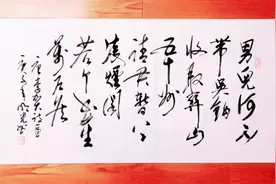 男儿何不
带吴钩
收取关山
五十州
请君暂上
凌烟阁
若个书生
万户侯
唐李贺诗